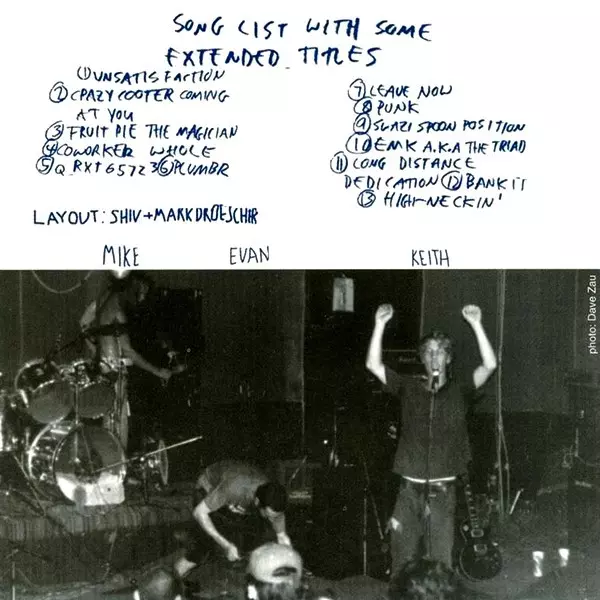 SONG LIST WITH SOME
EXTENDED TITLES
① UNSATISFACTION
② CRAZY COOTER COMING
AT YOU
③ FRUIT PIE THE MAGICIAN
④ COWORKER WHOLE
⑤ Q RXT65723 ⑥ PLUMBR
⑦ LEAVE NOW
⑧ PUNK
⑨ SWAZI SPOON POSITION
⑩ EMK A.K.A THE TRIAD
⑪ LONG DISTANCE
DEDICATION ⑫ BANK IT
⑬ HIGH-NECKIN'
LAYOUT: SHIV + MARK DROESCHER
MIKE EVAN KEITH
photo: Dave Zau